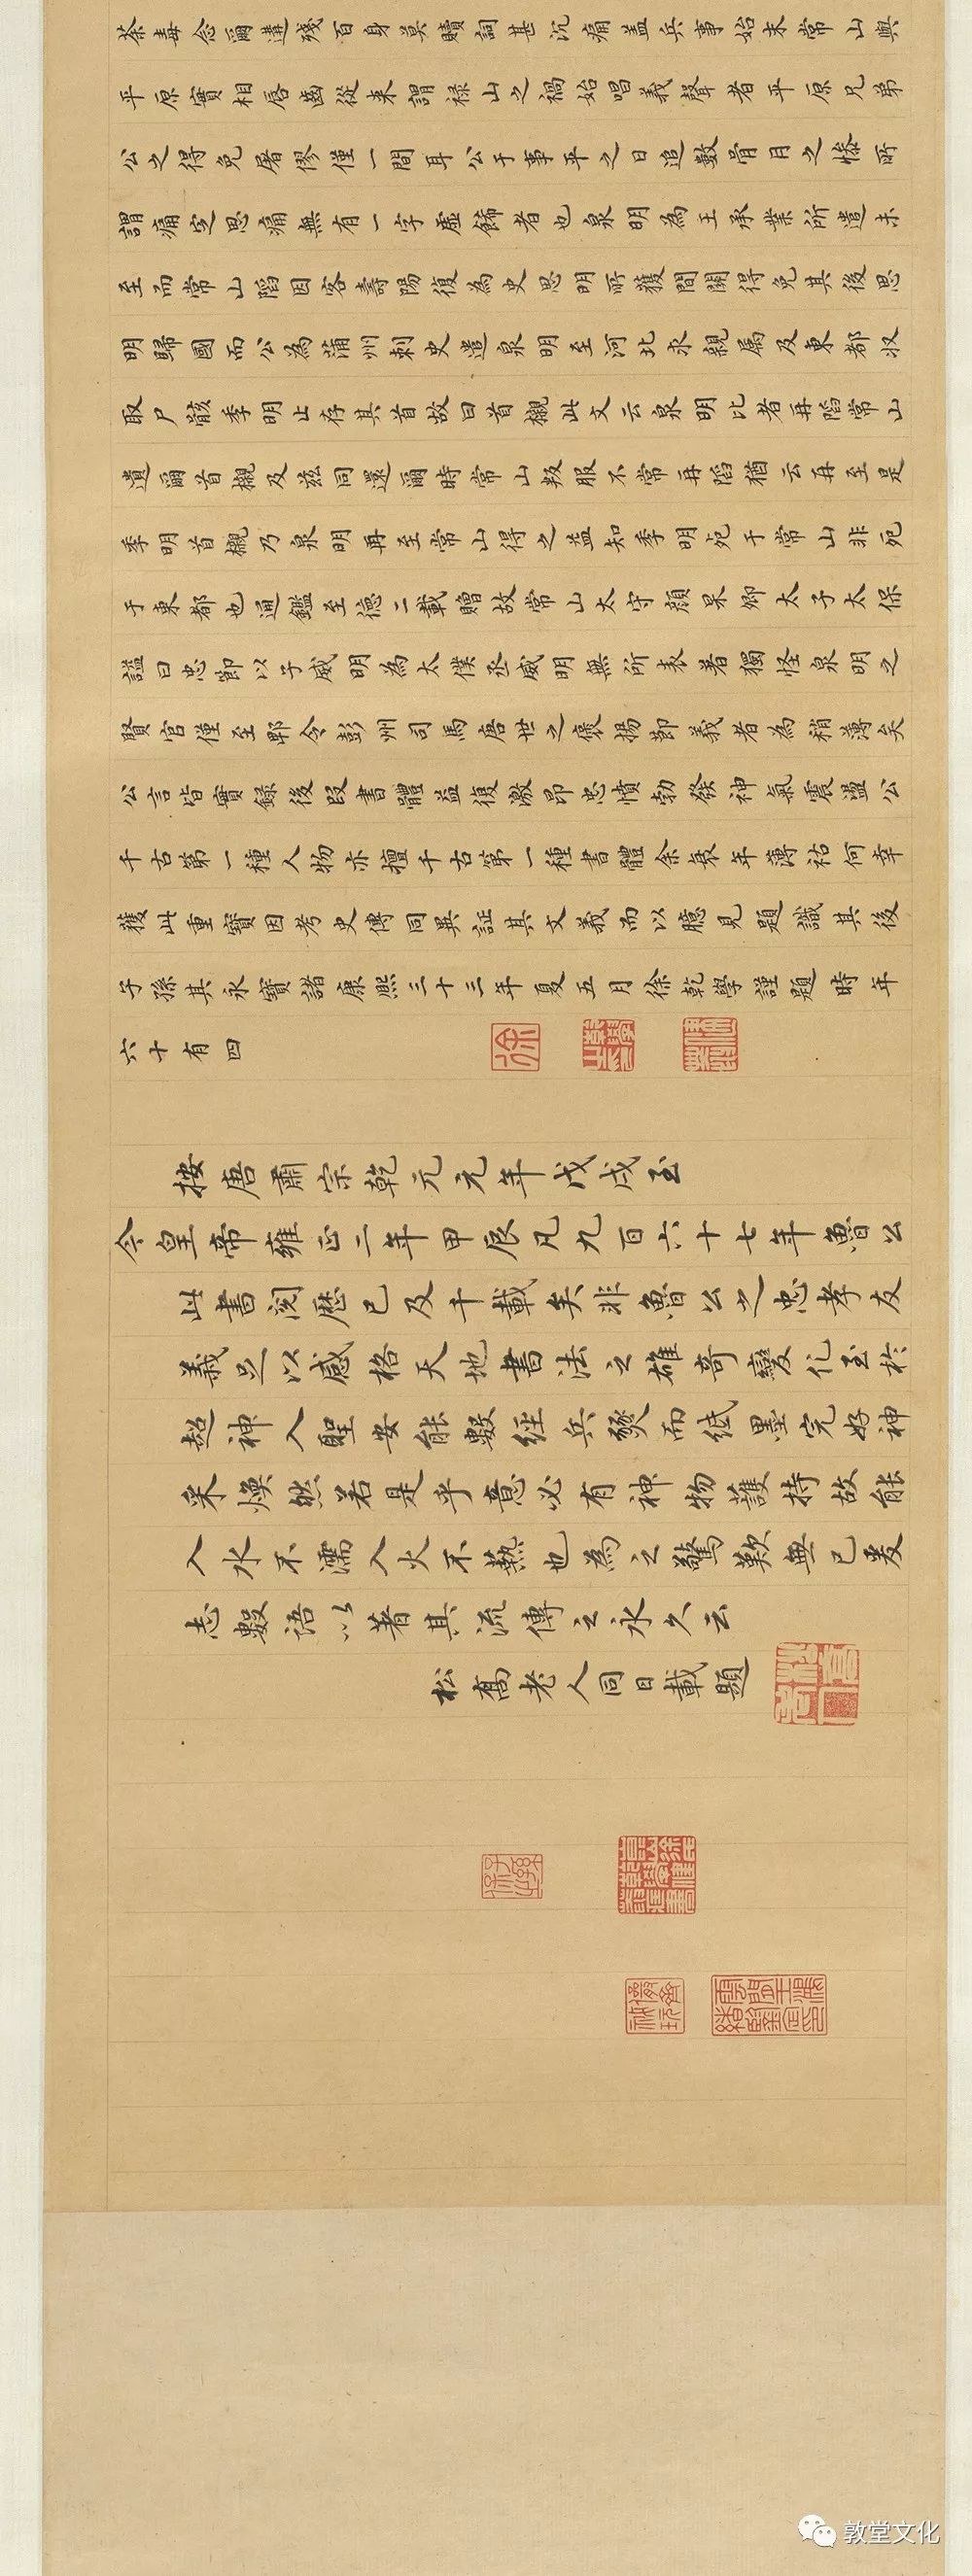 荼毒念爾遘殘百身莫贖詞甚沉痛蓋兵事始末常山與
平原實相唇齒從来謂祿山之禍始唱義聲者平原兄弟
公之得免屠僇僅一間耳公于事平之日追數骨月之慘所
謂痛定思痛無有一字虛餙者也泉明為王承業所遣未
至而常山䧟因客壽陽復為史思明所獲間關得免其後思
明歸國而公為蒲州刺史遣泉明至河北求親属及東都收
取尸骸季明止存其首故曰首櫬此文云泉明比者再䧟常山
遺爾首櫬及兹同還爾時常山叛服不常再䧟猶云再至是
季明首櫬乃泉明再至常山得之益知季明死于常山非死
于東都也通鑑至德二載贈故常山太守顔杲卿太子太保
謚曰忠節以子威明為太僕丞威明無所表著獨怪泉明之
賢官僅至郫令彭州司馬唐世之褒揚節義者為稍薄矣
公言皆實録後段書體益復激昂忠憤勃發神氣震盪公
千古第一種人物亦擅千古第一種書體余衰年薄祜何幸
獲此重寶因考史傳同異証其文義而以臆見題識其後
子孫其永寶諸康熙三十三年夏五月徐乾學謹題時年
六十有四
徐
乾學之印
按唐肅宗乾元元年戊戌至
今皇帝雍正二年甲辰凡九百六十七年魯公
此書閲歷已及千載矣非魯公之忠孝友
義足以感格天地書法之雄奇變化至於
超神入聖安能數經兵燹而紙墨完好神
采煥然若是乎意必有神物護持故能
入水不濡入火不爇也為之驚歎無已爰
志數語以著其流傳之永久云
松喬老人同日載題
敦堂文化